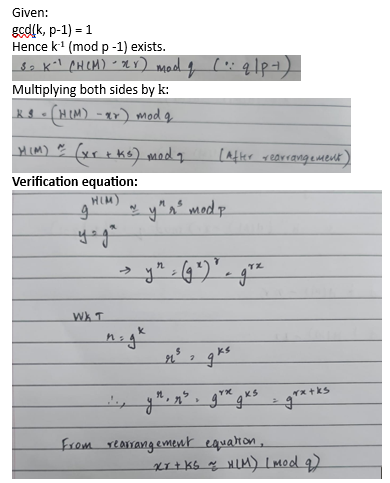 Given:
gcd(k, p-1) = 1
Hence k⁻¹ (mod p -1) exists.
s = k⁻¹ (H(M) - xr) mod q (∵ q|p-1)
Multiplying both sides by k:
ks = (H(M) - xr) mod q
H(M) ≅ (xr + ks) mod q (After rearrangement)
Verification equation:
g^H(M) ≅ y^r r^s mod p
y = g^x
→ y^r = (g^x)^r = g^rx
WKT
r = g^k
r^s = g^ks
∴, y^r, r^s = g^rx g^ks = g^rx+ks
From rearrangement equation,
xr + ks ≅ H(M) (mod q)